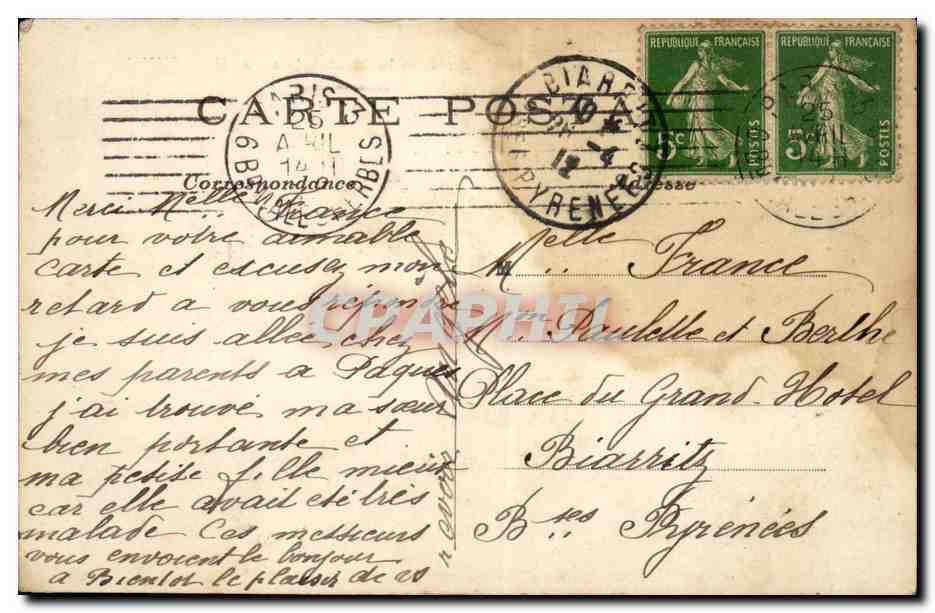 CARTE POSTALE
Correspondance
Adresse
REPUBLIQUE FRANÇAISE
5c
POSTES
REPUBLIQUE FRANÇAISE
5c
POSTES
PARIS
25
AVRIL
14
BIARRITZ
PYRENEES
Merci Melle France
pour votre aimable
carte et escusez mon
retard a vous répondre
je suis allée chez
mes parents a Paques
j'ai trouvé ma sœur
bien portante et
ma petite fille mieux
car elle avait été très
malade Ces messieurs
vous envoient le bonjour
a Bientot le plaisir de
Melle France
Mm Paulette et Berthe
Place du Grand-Hotel
Biarritz
Bses Pyrénées
CPAPHIL